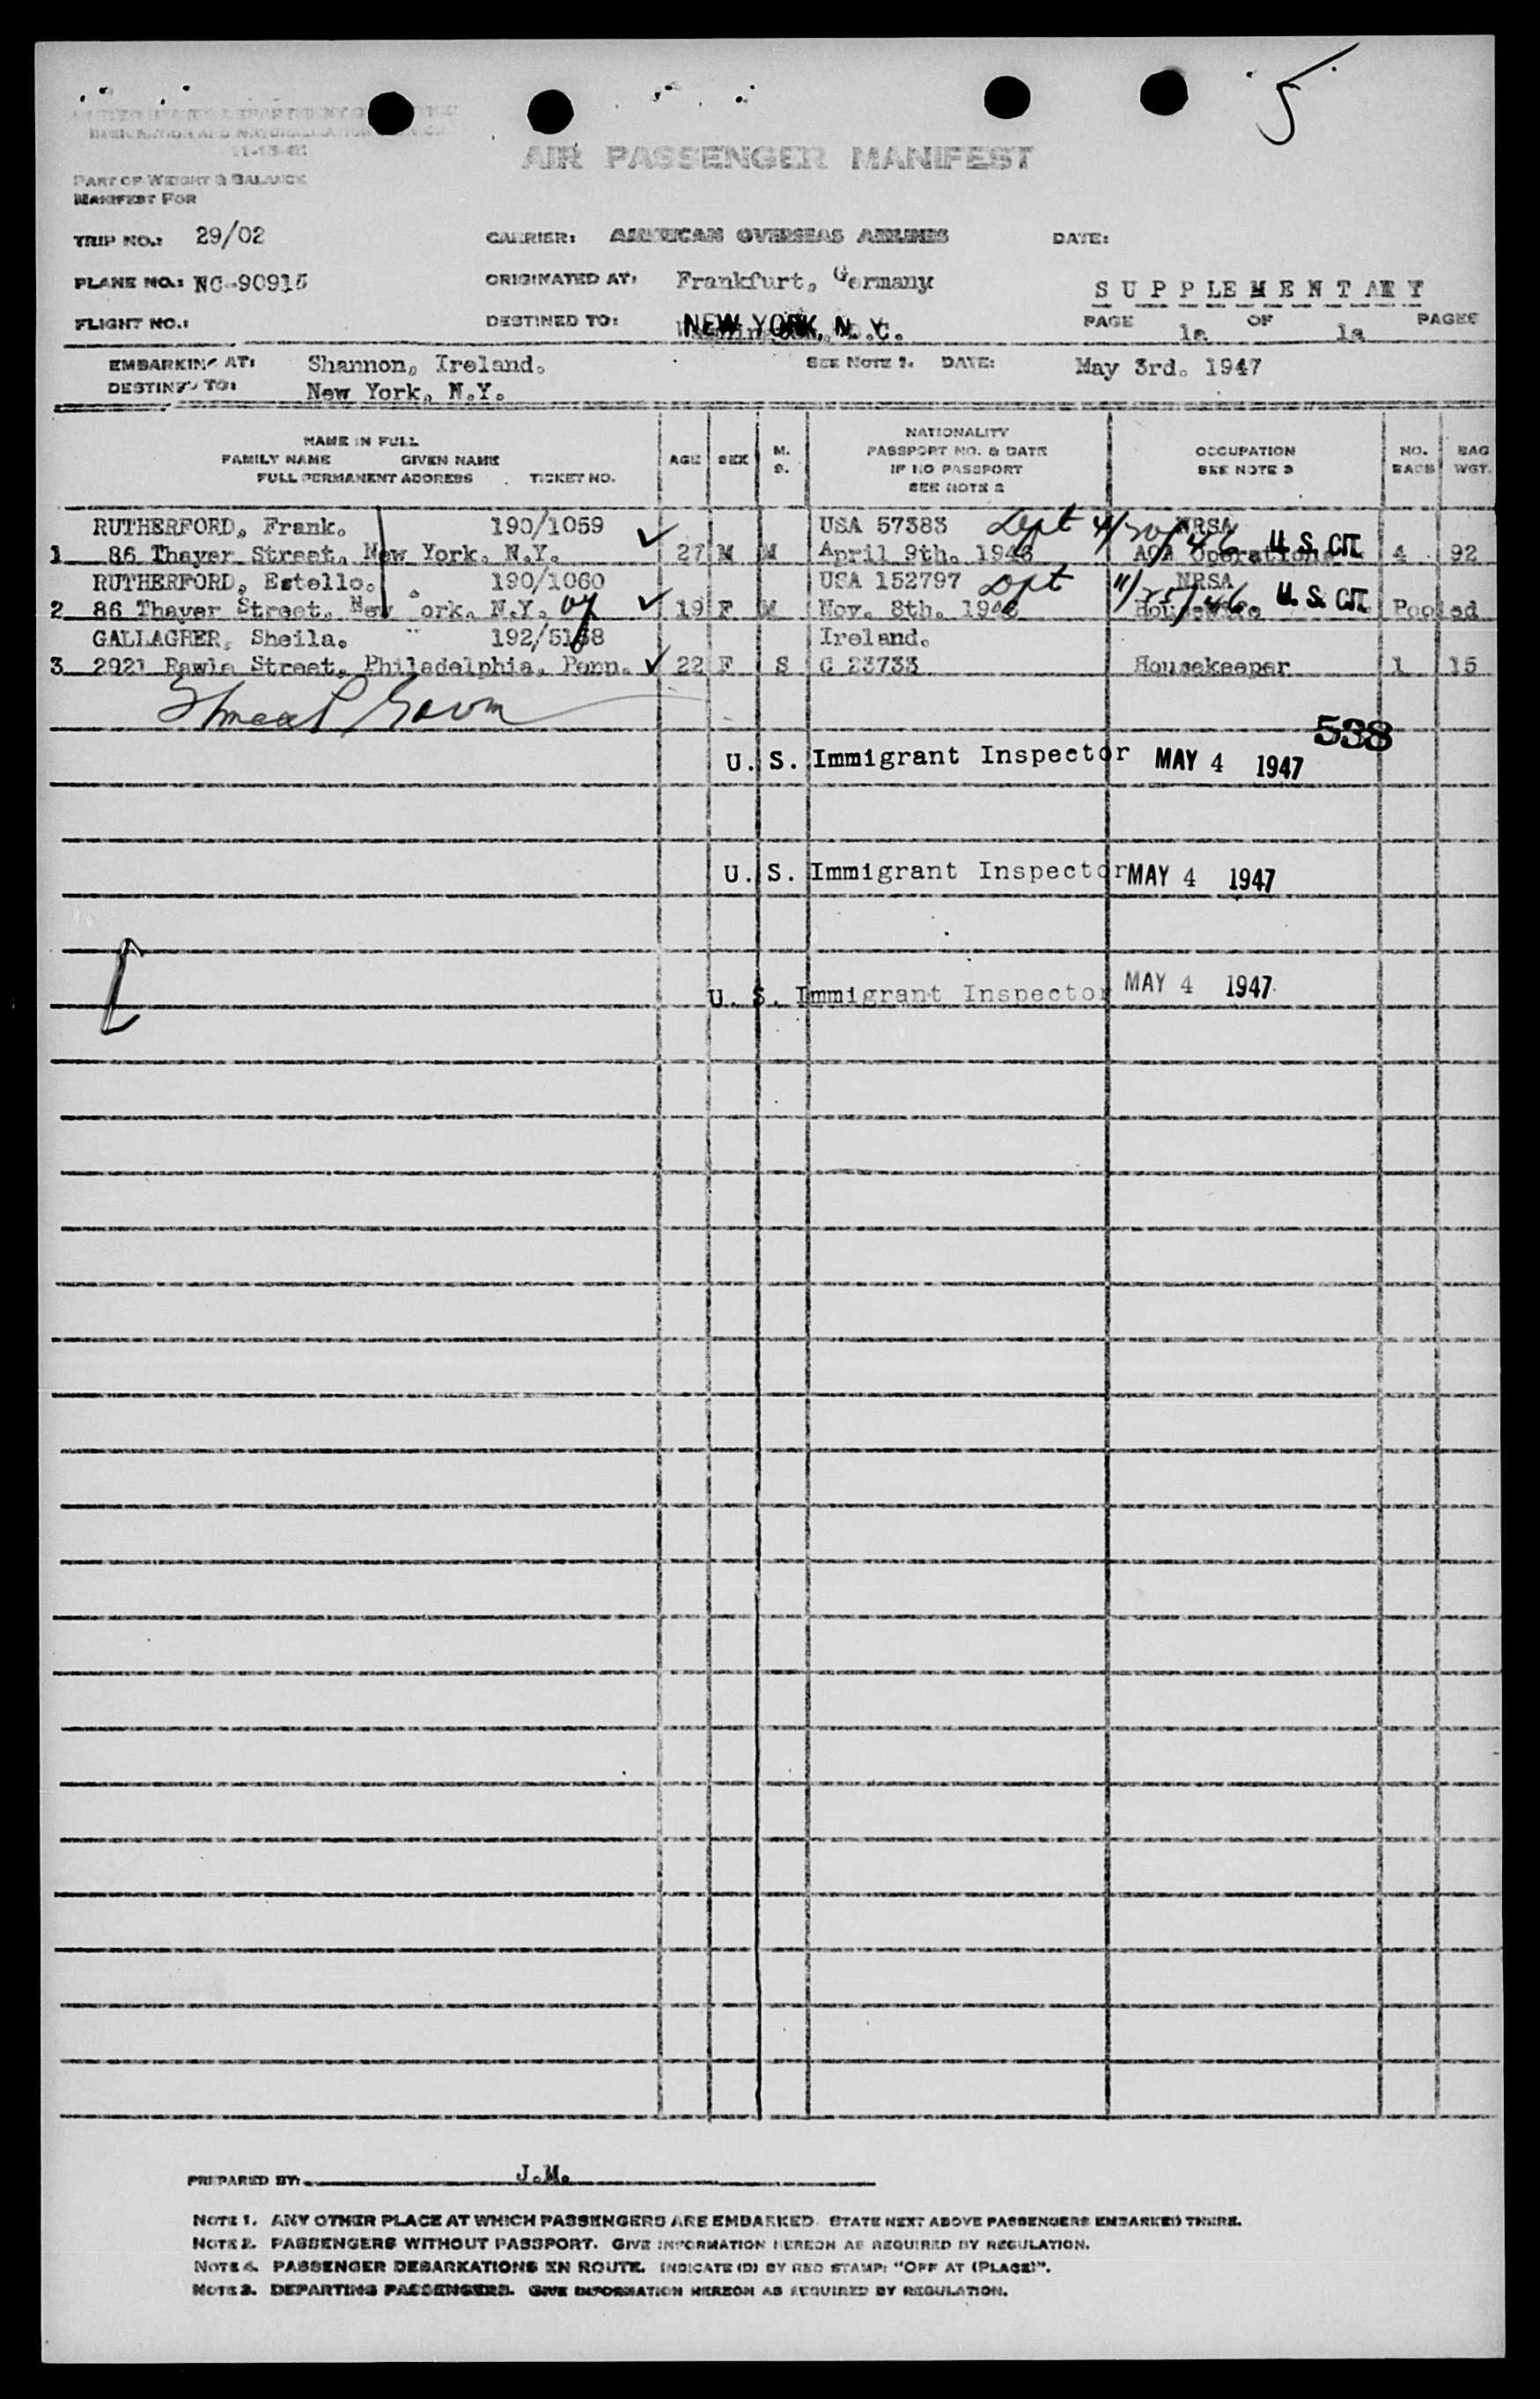 5
UNITED STATES DEPARTMENT OF
IMMIGRATION AND NATURALIZATION
AIR PASSENGER MANIFEST
PART OF WEIGHT & BALANCE
MANIFEST FOR
TRIP NO.: 29/02 CARRIER: AMERICAN OVERSEAS AIRLINES DATE:
PLANE NO.: NC-90915 ORIGINATED AT: Frankfurt, Germany
SUPPLEMENTARY
FLIGHT NO.: DESTINED TO: NEW YORK, N. Y. PAGE 1a OF 1a PAGES
EMBARKING AT: Shannon, Ireland. SEE NOTE 1. DATE: May 3rd. 1947
DESTINED TO: New York, N.Y.
NAME IN FULL
FAMILY NAME GIVEN NAME
FULL PERMANENT ADDRESS TICKET NO.
AGE SEX M. S.
NATIONALITY
PASSPORT NO. & DATE
IF NO PASSPORT
SEE NOTE 2
OCCUPATION
SEE NOTE 3
NO. BAGS
BAG WGT.
RUTHERFORD, Frank. 190/1059 USA 57383 Dept 4/30/46 NRSA
1 86 Thayer Street, New York. N.Y. 27 M M April 9th. 1946 AOA Operations U. S. CIT. 4 92
RUTHERFORD, Estelle. 190/1060 USA 152797 Dpt 11/25/46 NRSA
2 86 Thayer Street, New ork. N.Y. 19 F M Nov. 8th. 1946 Housewife U. S. CIT. Pooled
GALLAGHER, Sheila. " 192/5168 Ireland.
3 2921 Rawle Street, Philadelphia, Penn. 22 F S C 23733 Housekeeper 1 15
538
U. S. Immigrant Inspector MAY 4 1947
U. S. Immigrant Inspector MAY 4 1947
U. S. Immigrant Inspector MAY 4 1947
PREPARED BY: J.M.
NOTE 1. ANY OTHER PLACE AT WHICH PASSENGERS ARE EMBARKED. STATE NEXT ABOVE PASSENGERS EMBARKED THERE.
NOTE 2. PASSENGERS WITHOUT PASSPORT. GIVE INFORMATION HEREON AS REQUIRED BY REGULATION.
NOTE 4. PASSENGER DEBARKATIONS EN ROUTE. INDICATE (D) BY RED STAMP: "OFF AT (PLACE)".
NOTE 3. DEPARTING PASSENGERS. GIVE INFORMATION HEREON AS REQUIRED BY REGULATION.